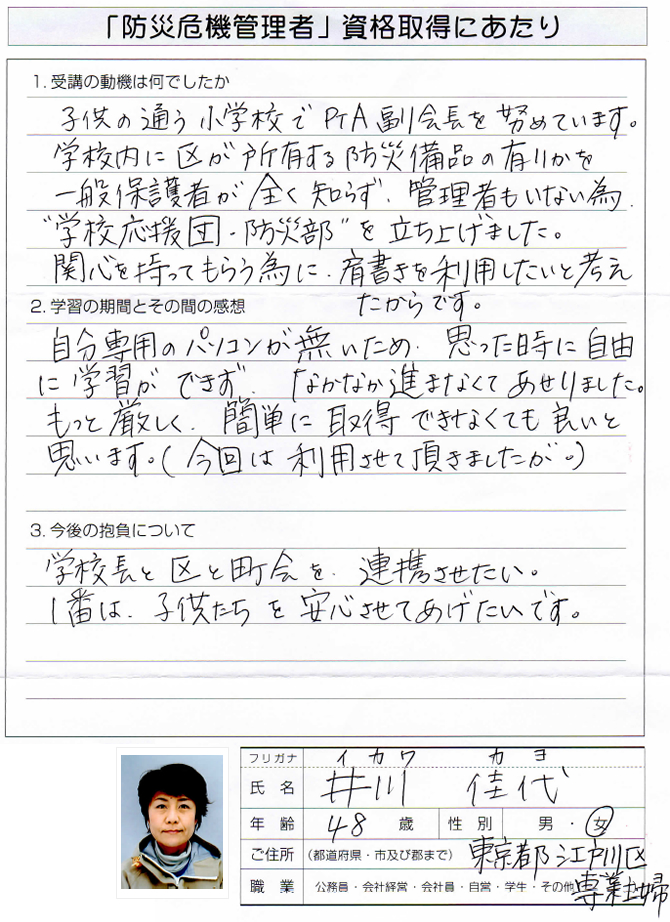 「防災危機管理者」資格取得にあたり
1. 受講の動機は何でしたか
子供の通う小学校でPTA副会長を努めています。
学校内に区が所有する防災備品の有りかを
一般保護者が全く知らず、管理者もいない為、
"学校応援団・防災部"を立ち上げました。
関心を持ってもらう為に、肩書きを利用したいと考え
たからです。
2. 学習の期間とその間の感想
自分専用のパソコンが無いため、思った時に自由
に学習ができず、なかなか進まなくてあせりました。
もっと厳しく、簡単に取得できなくても良いと
思います。(今回は利用させて頂きましたが。)
3. 今後の抱負について
学校長と区と町会を、連携させたい。
1番は、子供たちを安心させてあげたいです。
フリガナ イカワ カヨ
氏名 井川 佳代
年齢 48 歳 性別 男・女
ご住所 (都道府県・市及び郡まで) 東京都江戸川区
職業 公務員・会社経営・会社員・自営・学生・その他 専業主婦